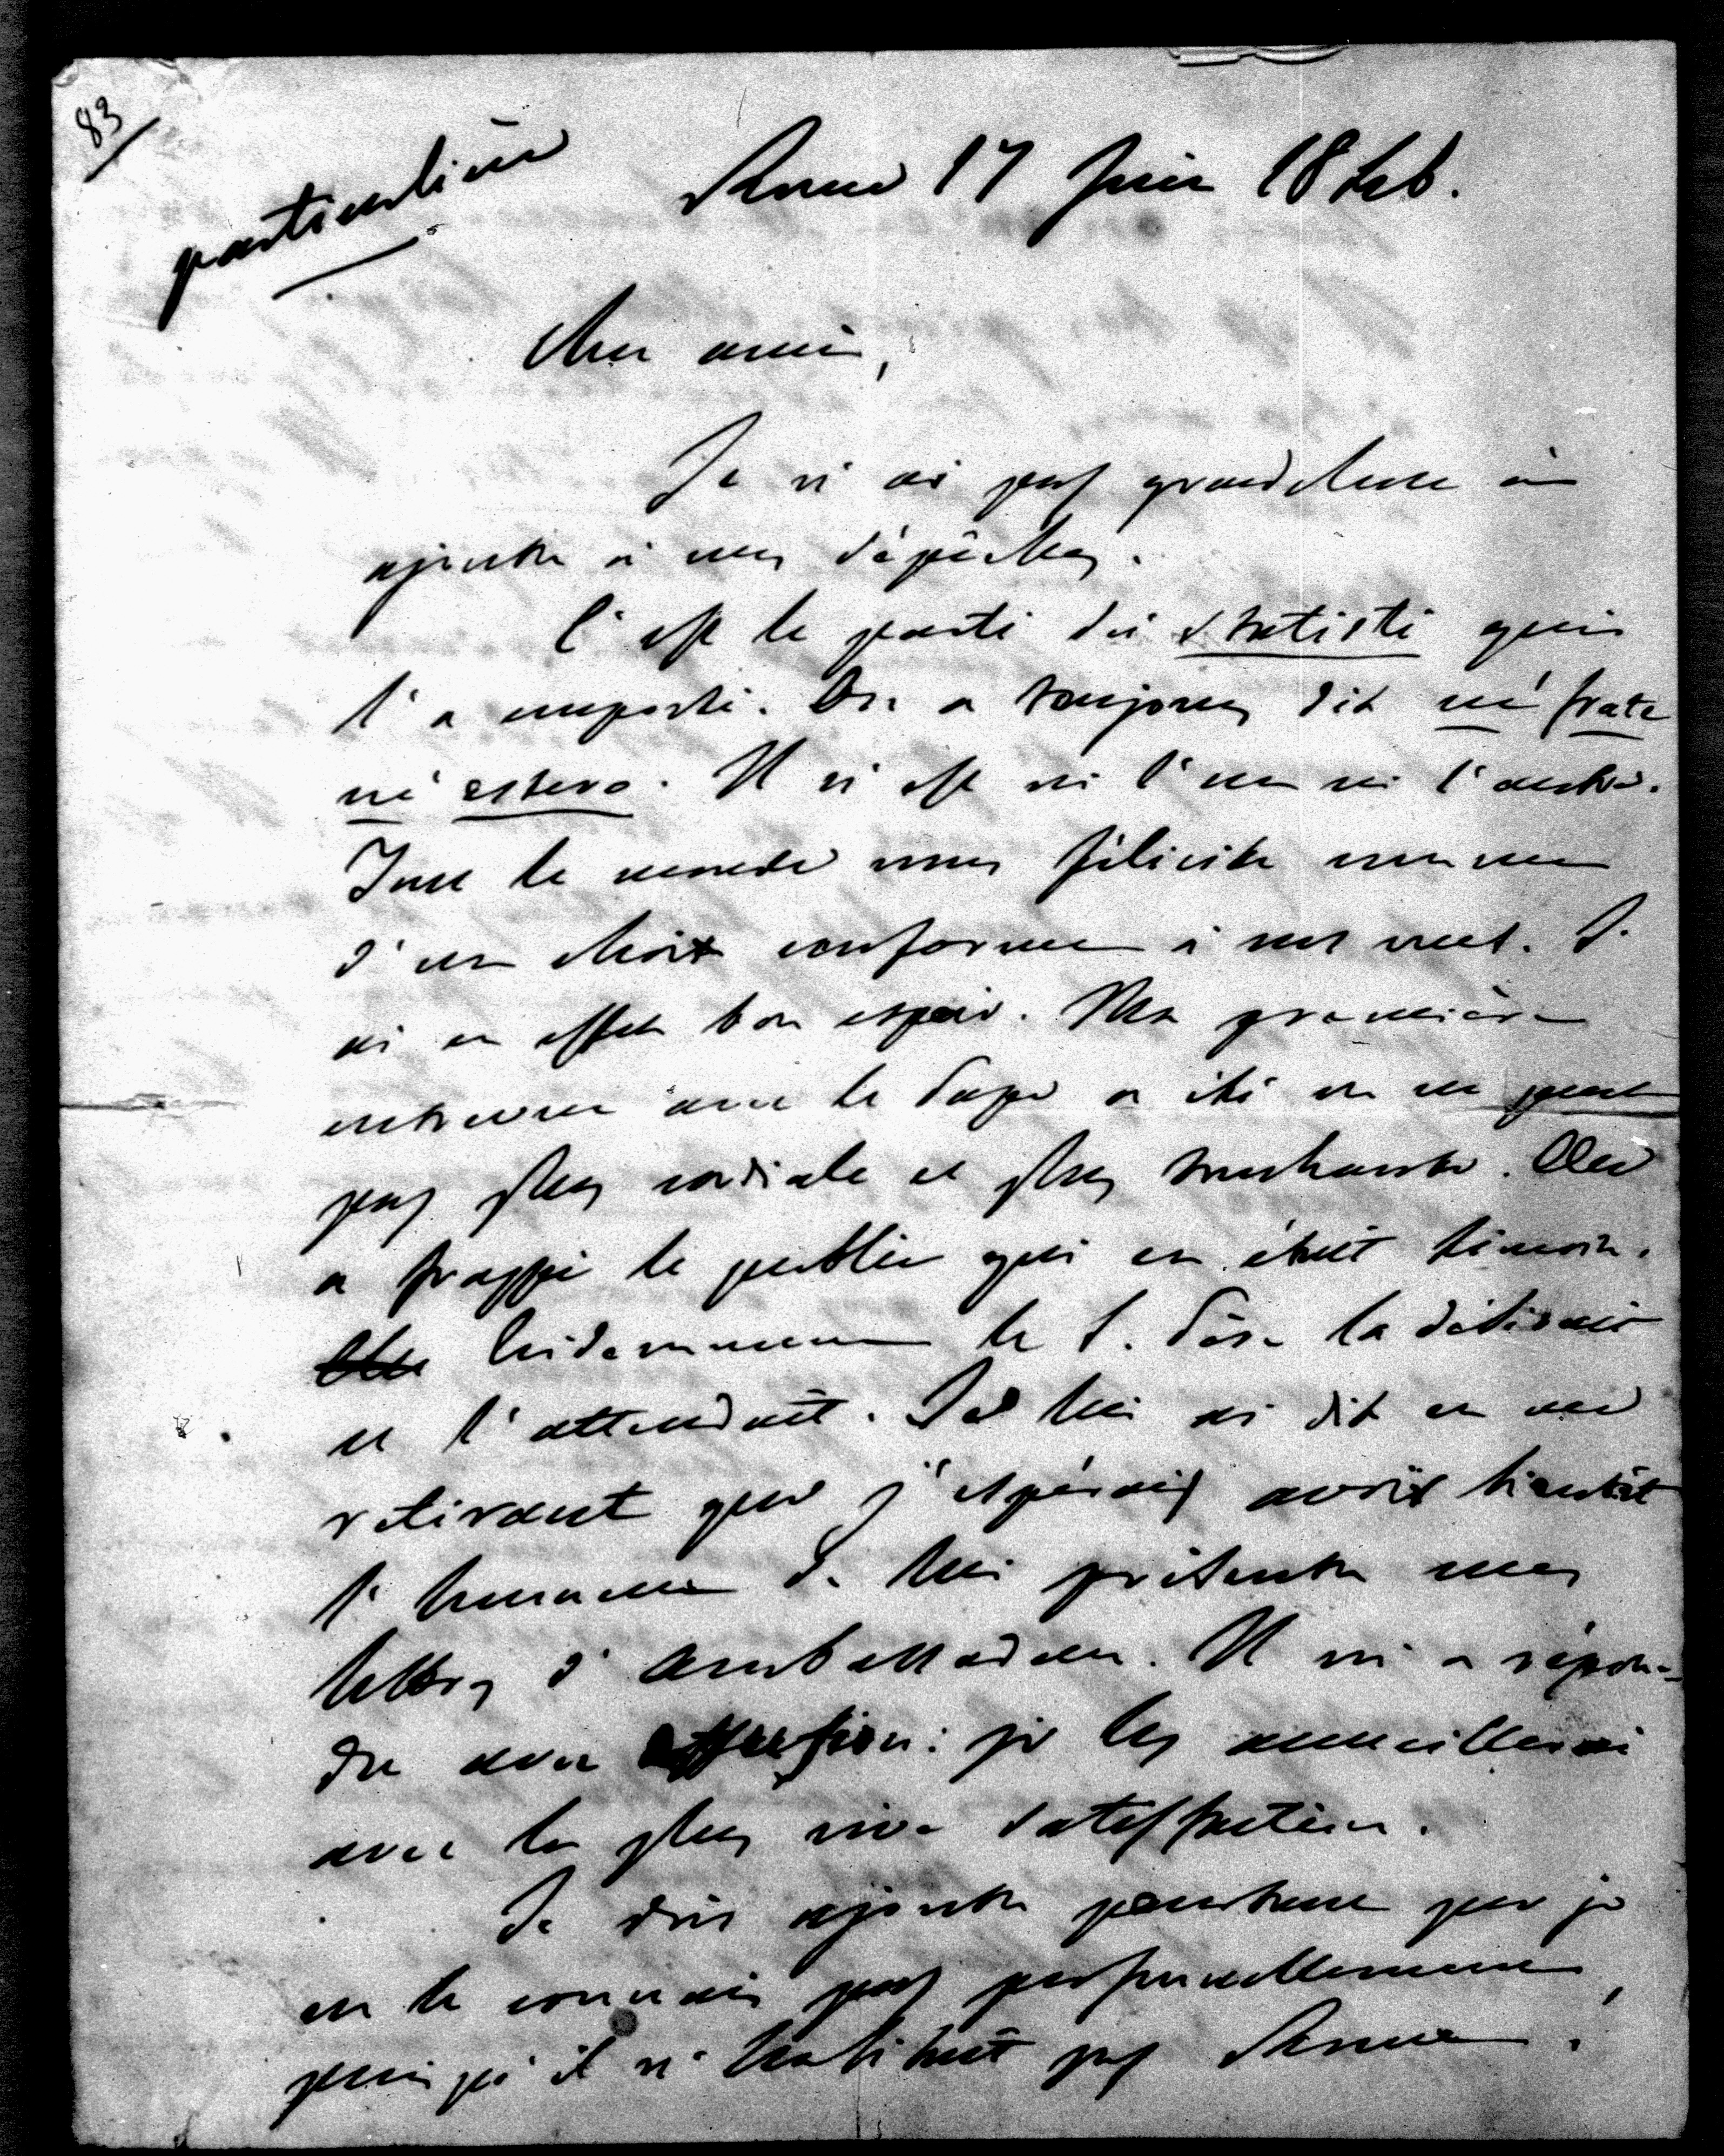 83
particulière
Rome 17 Juin 1846.
Cher ami,
Je n'ai pas grand chose à
ajouter à mes dépêches.
C'est le parti des statisti qui
l'a emporté. On a toujours dit né frate
né estero. Il n'est ni l'un ni l'autre.
Tout le monde nous félicite comme
d'un choix conforme à nos vues. J'
ai en effet bon espoir. Ma première
entrevue avec le Pape a été on ne peut
pas plus cordiale et plus touchante. Elle
a frappé le public qui en était témoin.
Evidemment le S. Père la désirait
et l'attendait. Je lui ai dit en me
retirant que j'espérais avoir bientôt
l'honneur de lui présenter mes
lettres d'ambassadeur. Il m'a répon-
du avec affection: je les accueillerai
avec la plus vive satisfaction.
Je dois ajouter pourtant que je
ne le connais pas personnellement,
puisqu'il n'habitait pas Rome.